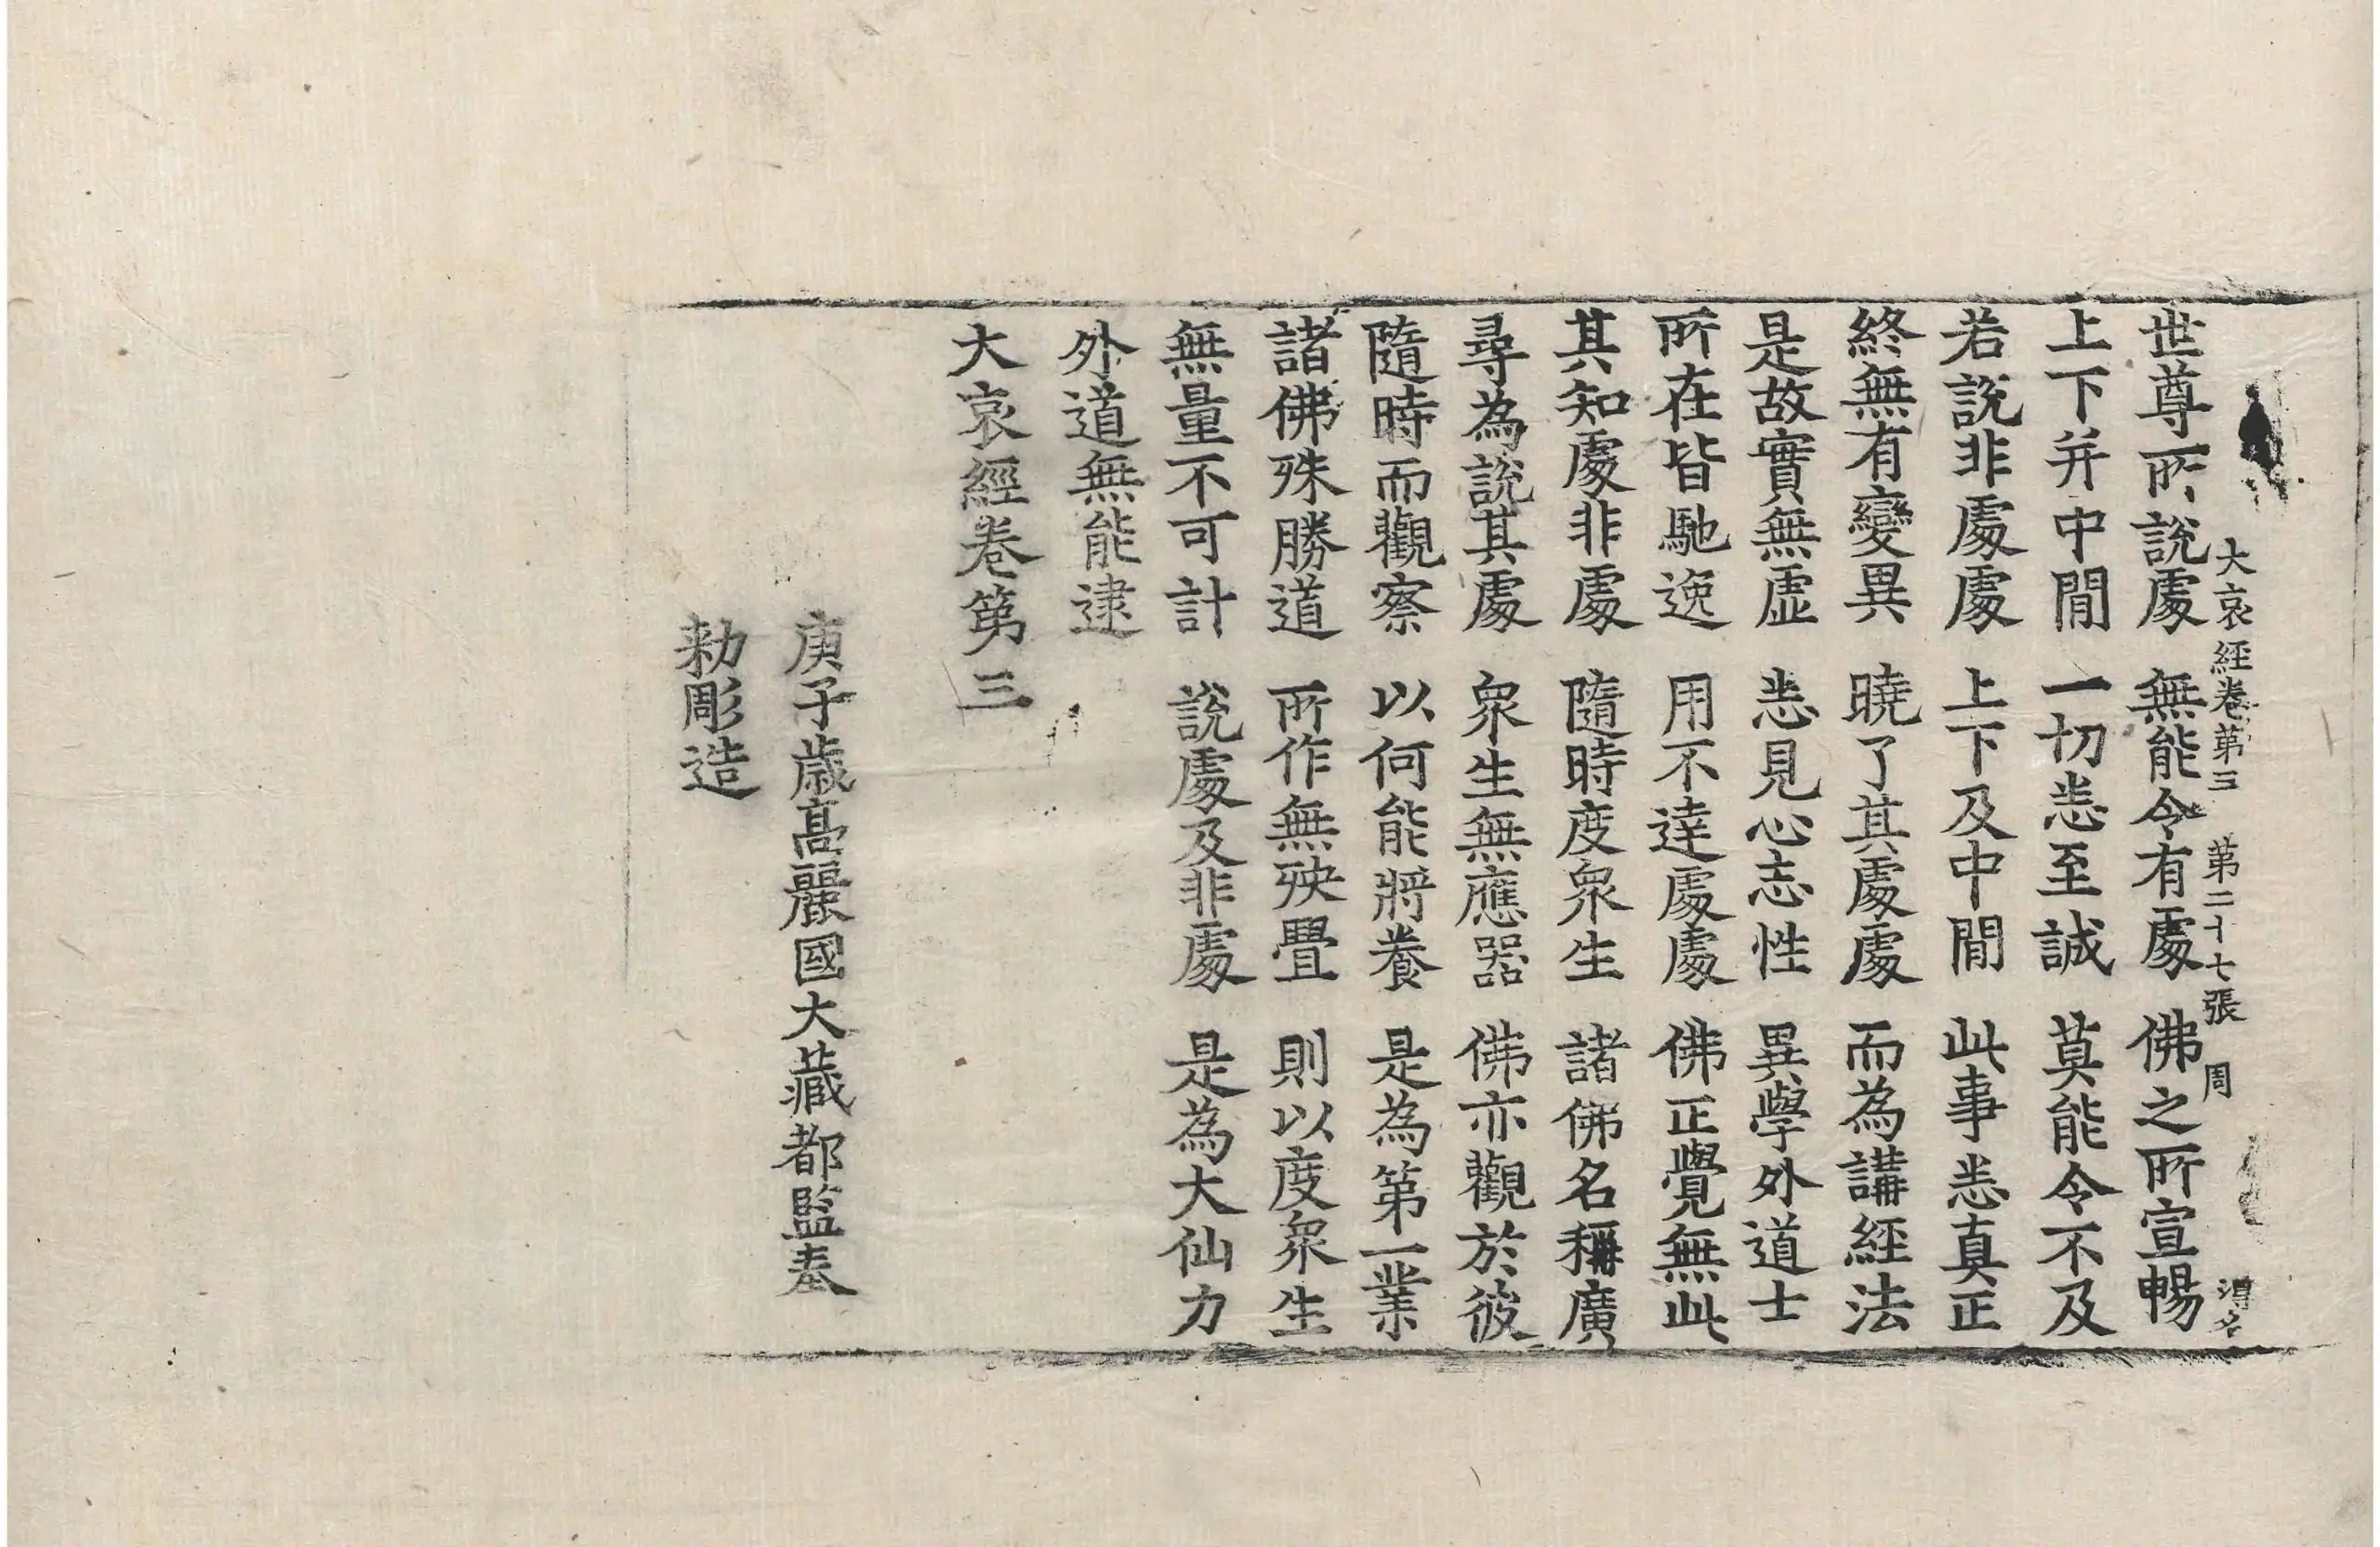 大哀經卷第三 第二十七張 周
世尊所說處 無能令有處 佛之所宣暢
上下并中間 一切悉至誠 莫能令不及
若說非處處 上下及中間 此事悉真正
終無有變異 曉了其處處 而為講經法
是故實無虛 悉見心志性 異學外道士
所在皆馳逸 用不達處處 佛正覺無此
其知處非處 隨時度衆生 諸佛名稱廣
尋為說其處 衆生無應器 佛亦觀於彼
隨時而觀察 以何能將養 是為第一業
諸佛殊勝道 所作無殃舋 則以度衆生
無量不可計 說處及非處 是為大仙力
外道無能逮
大哀經卷第三
庚子歲高麗國大藏都監奉
勑彫造